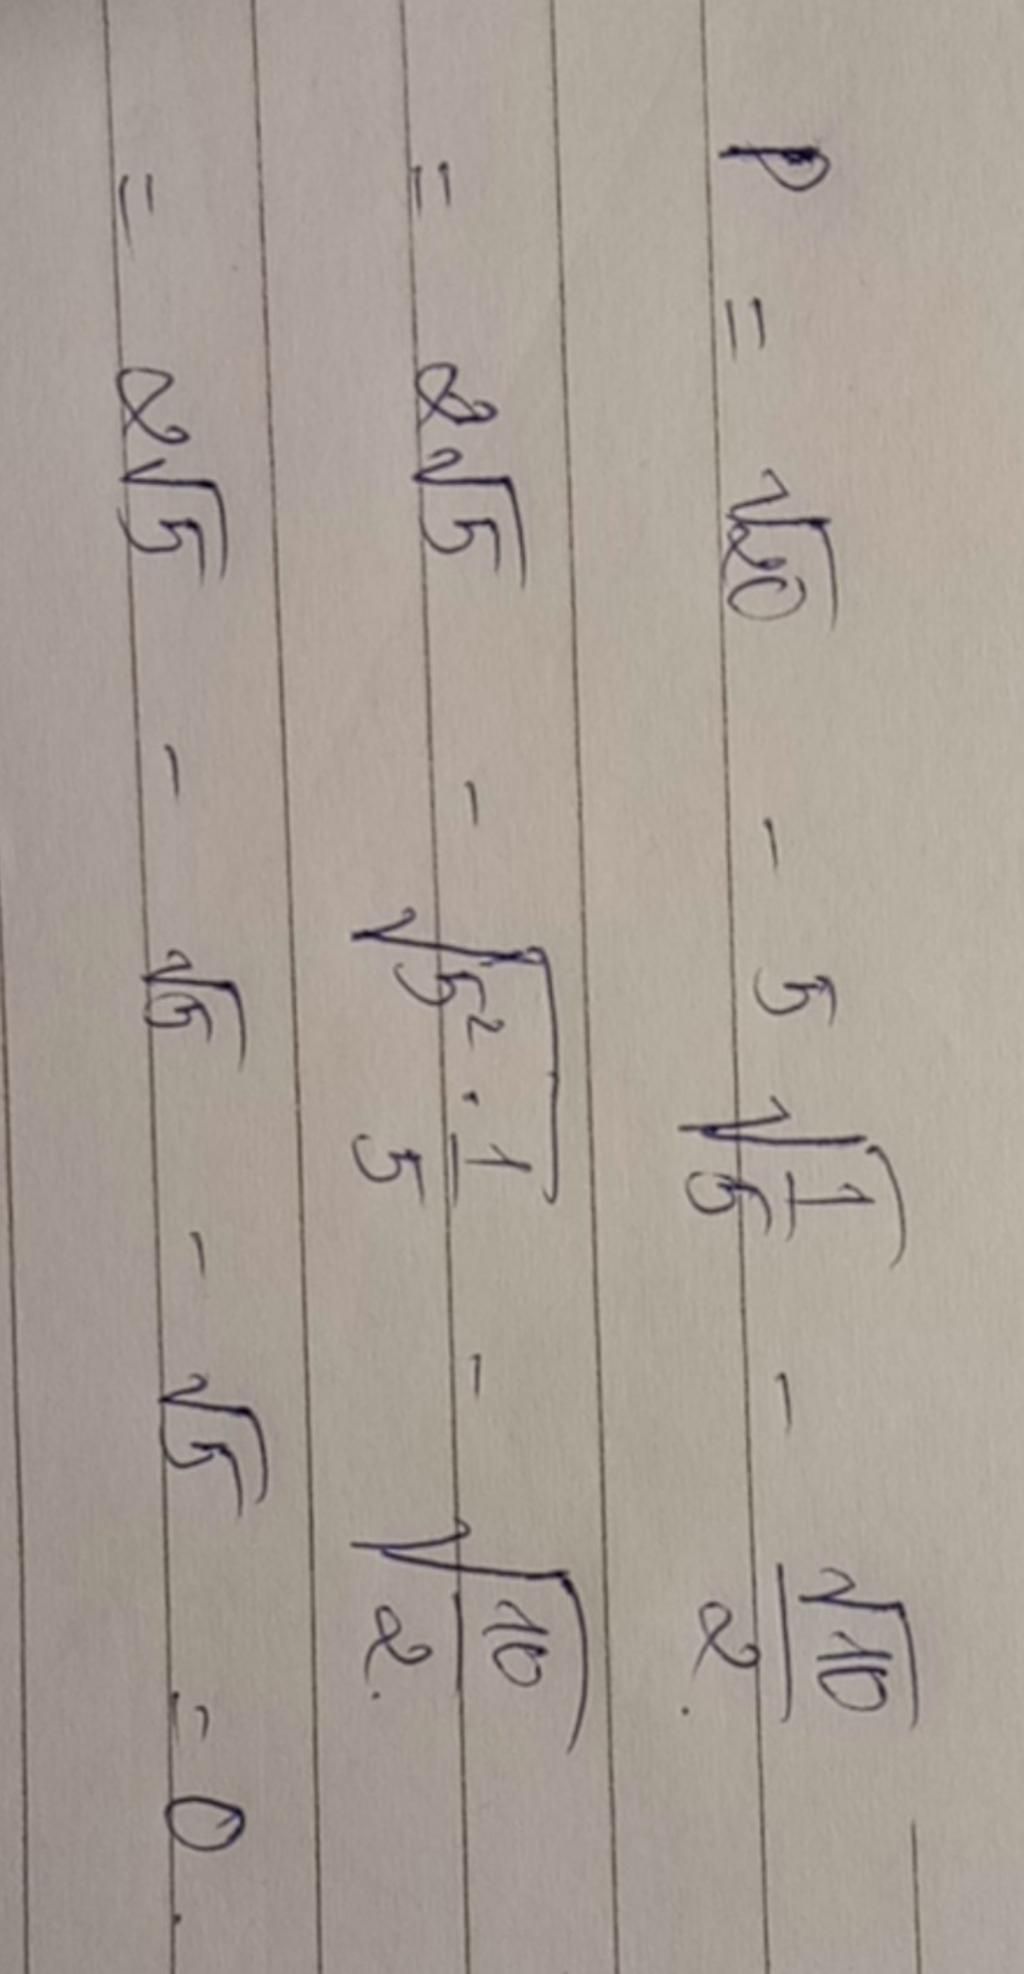 P = √20 - 5 √(1/5) - √10/2.
= 2√5 - √(5² · 1/5) - √(10/2).
= 2√5 - √5 - √5 = 0.